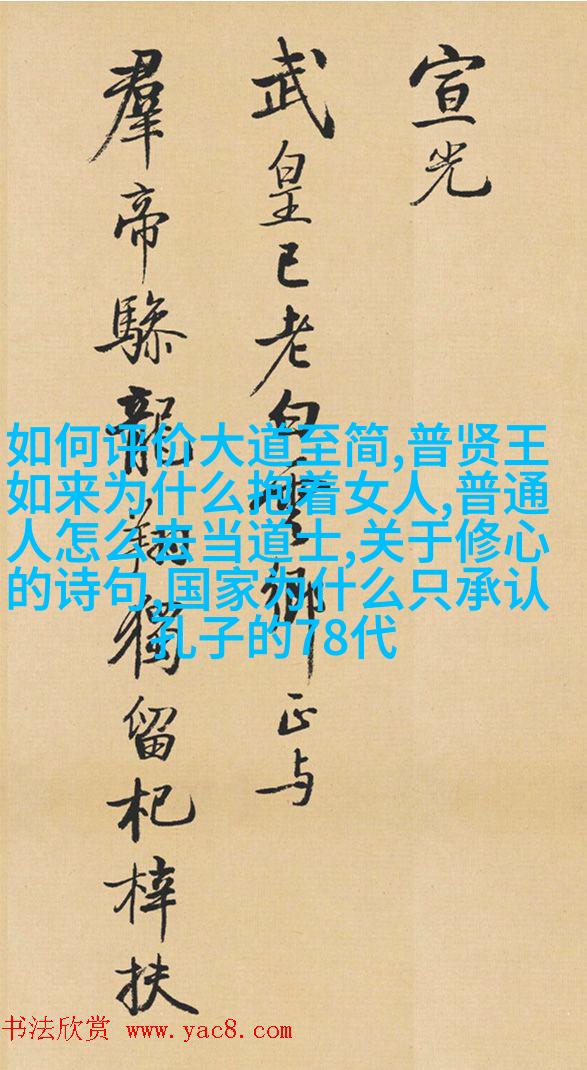 宣光
武皇已老白雲鄉正与
羣帝驂龍翔獨留杞梓扶
如何评价大道至简,普贤王
如来为什么抱着女人,普通
人怎么去当道士,关于修心
的诗句,国家为什么只承认
孔子的78代
书法欣赏 www.yac8.com